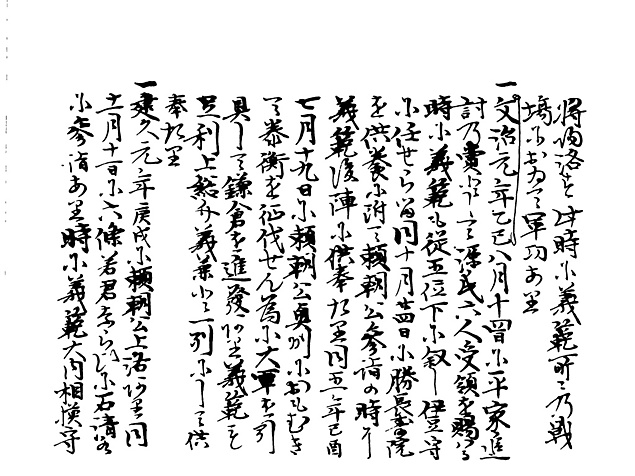 将陥落せ此時に義範所々乃戦
場において軍功あり
一文治元年乙巳八月十四日に平家追
討乃賞として源氏六人受領を賜はる
時に義範も従五位下に叙し伊豆守
に任せらる同十月廿四日に勝長寿院
を供養に附て頼朝公参詣の時に
義範後陣に供奉たり同五年己酉
七月十九日に頼朝公奥州におもむき
て泰衡を征伐せん為に大軍を引
具して鎌倉を進發に義範も
足利上総介義兼と一列にして供
奉たり
一建久元年庚戌に頼朝公上洛同
十一月十一日に六條若君石清水
に参詣あり時に義範大内相模守